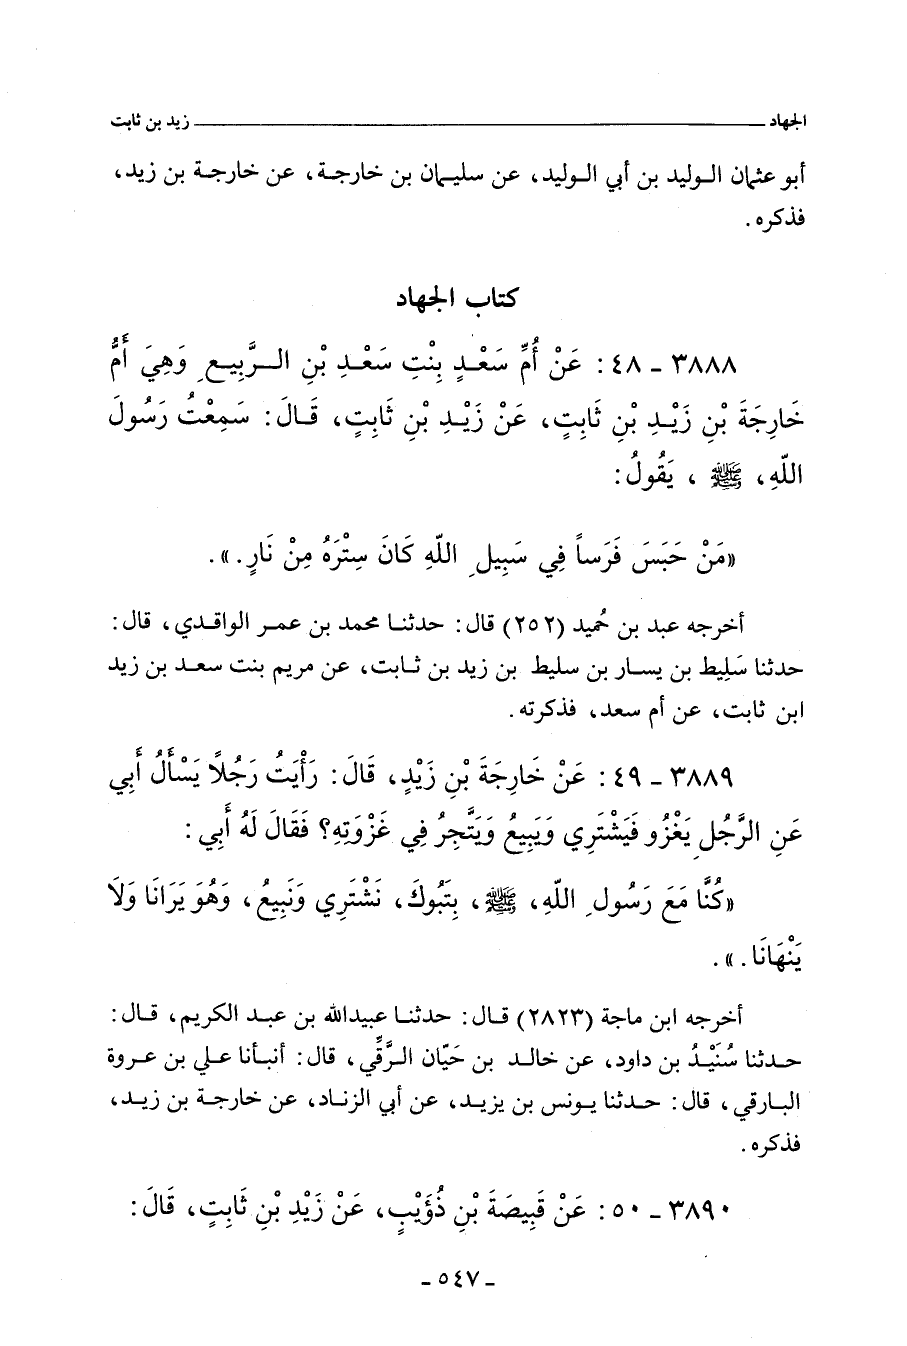 الجهاد ــــــــــ زيد بن ثابت
أبو عثمان الوليد بن أبي الوليد، عن سليمان بن خارجة، عن خارجة بن زيد،
فذكره.
كتاب الجهاد
٣٨٨٨ ـ ٤٨ : عَنْ أُمِّ سَعْدٍ بِنْتِ سَعْدِ بْنِ الرَّبِيعِ وَهِيَ أُمُّ
خَارِجَةَ بْنِ زَيْدِ بْنِ ثَابِتٍ، عَنْ زَيْدِ بْنِ ثَابِتٍ، قَالَ: سَمِعْتُ رَسُولَ
اللّهِ، ﷺ ، يَقُولُ:
«مَنْ حَبَسَ فَرَساً فِي سَبِيلِ اللّهِ كَانَ سِتْرَهُ مِنْ نَارٍ.».
أخرجه عبد بن حُميد (٢٥٢) قال: حدثنا محمد بن عمر الواقدي، قال:
حدثنا سَلِيط بن يسار بن سليط بن زيد بن ثابت، عن مريم بنت سعد بن زيد
ابن ثابت، عن أم سعد، فذكرته.
٣٨٨٩ ـ ٤٩ : عَنْ خَارِجَةَ بْنِ زَيْدٍ، قَالَ: رَأَيْتُ رَجُلاً يَسْأَلُ أَبِي
عَنِ الرَّجُلِ يَغْزُو فَيَشْتَرِي وَيَبِيعُ وَيَتَّجِرُ فِي غَزْوَتِهِ؟ فَقَالَ لَهُ أَبِي:
«كُنَّا مَعَ رَسُولِ اللّهِ، ﷺ، بِتَبُوكَ، نَشْتَرِي وَنَبِيعُ، وَهُوَ يَرَانَا وَلَا
يَنْهَانَا.».
أخرجه ابن ماجة (٢٨٢٣) قال: حدثنا عبيدالله بن عبد الكريم، قال:
حدثنا سُنَيْدُ بن داود، عن خالد بن حَيَّان الرَّقِّي، قال: أنبأنا علي بن عروة
البارقي، قال: حدثنا يونس بن يزيد، عن أبي الزناد، عن خارجة بن زيد،
فذكره.
٣٨٩٠ ـ ٥٠ : عَنْ قَبِيصَةَ بْنِ ذُؤَيْبٍ، عَنْ زَيْدِ بْنِ ثَابِتٍ، قَالَ:
ـ ٥٤٧ ـ